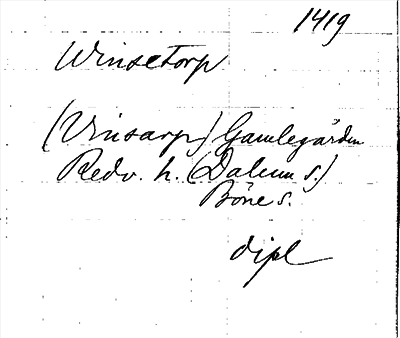 1419
Winsetorp
(Vinsarp) Gamlegården
Redv. h. (Dalum s.)
Böne s.
dipl